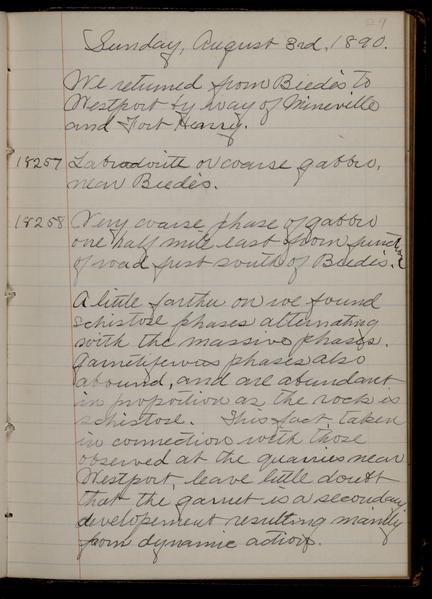 29
Sunday, August 3rd, 1890.
We returned from Biedes to
Westport by way of Mineville
and Fort Henry.
18257 Labradorite or coarse gabbro,
near Biedes.
18258 Very coarse phase of gabbro
one half mile east from junction
of road just south of Biedes.
A little farther on we found
schistose phases alternating
with the massive phases.
Garnetiferous phases also
abound, and are abundant
in proportion as the rock is
schistose. This fact, taken
in connection with those
observed at the quarries near
Westport, leave little doubt
that the garnet is a secondary
developement resulting mainly
from dynamic action.